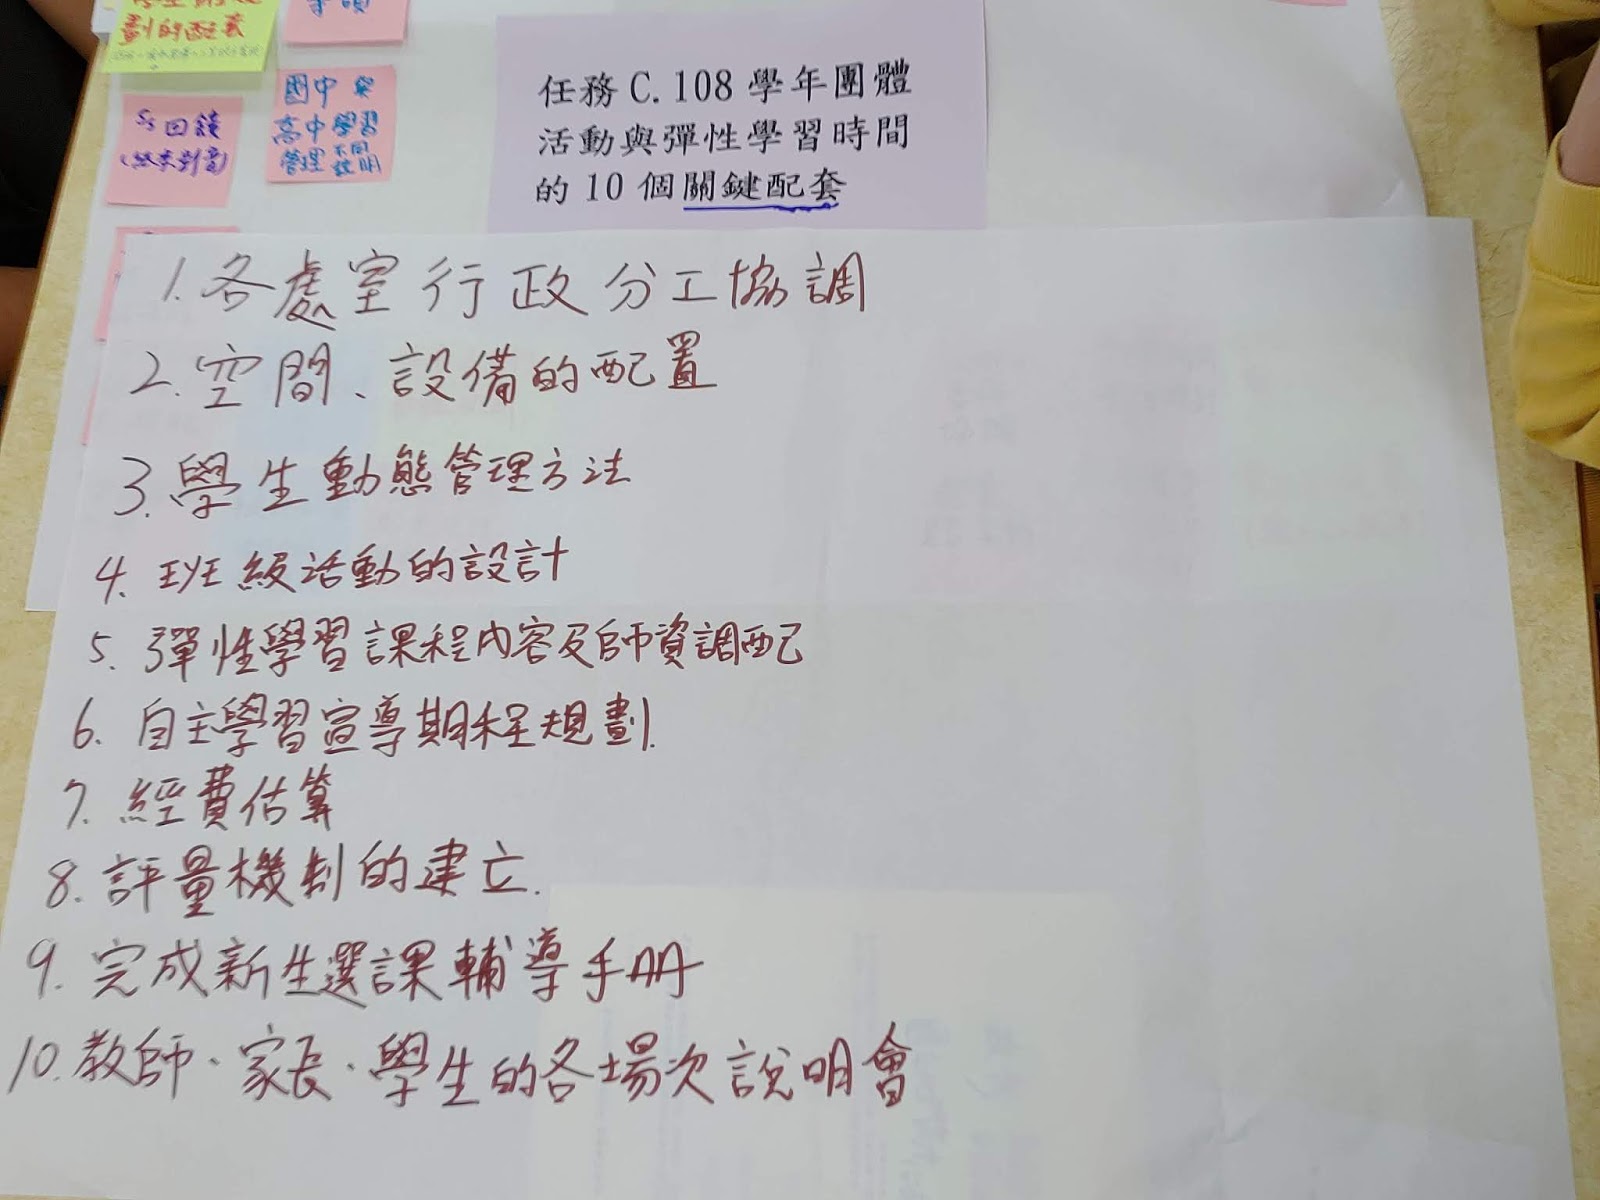 劃的配套
Ss回饋
國中與
高中學習
管理不同
說明
任務 C. 108 學年團體
活動與彈性學習時間
的 10 個關鍵配套
1. 各處室行政分工協調
2. 空間、設備的配置
3. 學生動態管理方法
4. 班級活動的設計
5. 彈性學習課程內容及師資調配
6. 自主學習宣導期程規劃.
7. 經費估算
8. 評量機制的建立.
9. 完成新生選課輔導手冊
10. 教師.家長.學生的各場次說明會